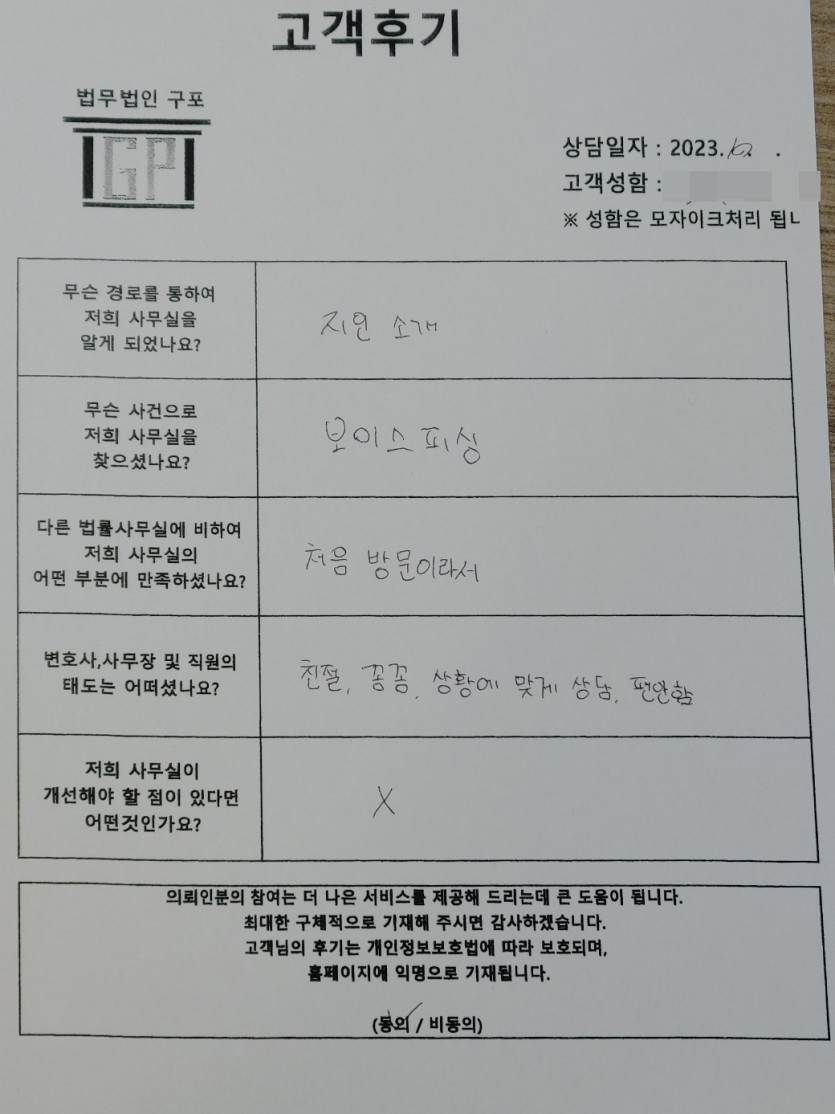 고객후기
법무법인 구포
GP
상담일자 : 2023. 12. .
고객성함 :
※ 성함은 모자이크처리 됩ㄴ
무슨 경로를 통하여
저희 사무실을
알게 되었나요?
지인 소개
무슨 사건으로
저희 사무실을
찾으셨나요?
보이스피싱
다른 법률사무실에 비하여
저희 사무실의
어떤 부분에 만족하셨나요?
처음 방문이라서
변호사,사무장 및 직원의
태도는 어떠셨나요?
친절, 꼼꼼, 상황에 맞게 상담, 편안함
저희 사무실이
개선해야 할 점이 있다면
어떤것인가요?
X
의뢰인분의 참여는 더 나은 서비스를 제공해 드리는데 큰 도움이 됩니다.
최대한 구체적으로 기재해 주시면 감사하겠습니다.
고객님의 후기는 개인정보보호법에 따라 보호되며,
홈페이지에 익명으로 기재됩니다.
(동의 / 비동의)